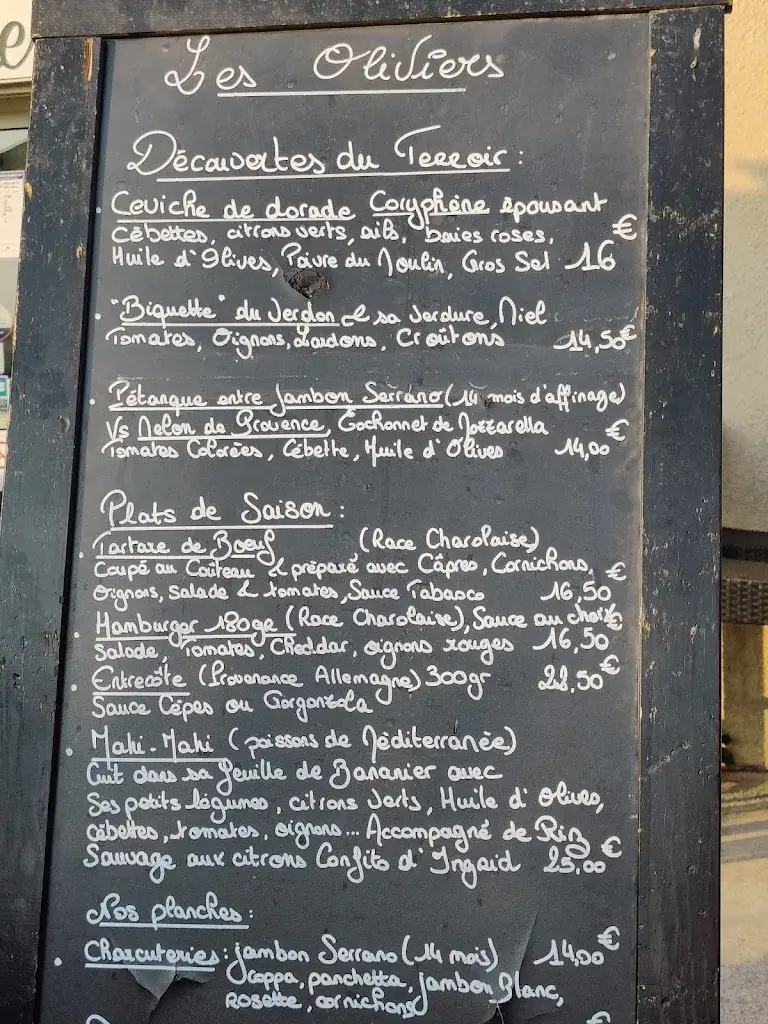 Les Oliviers
Découvertes du Terroir :
Ceviche de dorade Coryphène épousant
Cébettes, citrons verts, ails, baies roses, €
Huile d'Olives, Poivre du Moulin, Gros Sel 16
"Biquette" du Verdon & sa Verdure, Miel
Tomates, Oignons, Lardons, Croûtons 14,50€
Pétanque entre Jambon Serrano (14 mois d'affinage)
Vs Melon de Provence, Cochonnet de Mozzarella €
Tomates Colorées, Cébette, Huile d'Olives 14,00
Plats de Saison :
Tartare de Boeuf (Race Charolaise)
Coupé au Couteau & préparé avec Câpres, Cornichons, €
Oignons, salade & tomates, Sauce Tabasco 16,50
Hamburger 180gr (Race Charolaise), Sauce au choix €
Salade, Tomates, Cheddar, oignons rouges 16,50
Entrecôte (Provenance Allemagne) 300gr 22,50€
Sauce Cèpes ou Gorgonzola
Mahi-Mahi (poissons de Méditerranée)
Cuit dans sa feuille de Bananier avec
Ses petits légumes, citrons verts, Huile d'Olives,
cébettes, tomates, oignons... Accompagné de Riz
Sauvage aux citrons Confits d'Ingrid 25,00€
Nos planches :
Charcuteries : jambon Serrano (14 mois) 14,00€
coppa, panchetta, jambon Blanc,
Rosette, cornichons
€